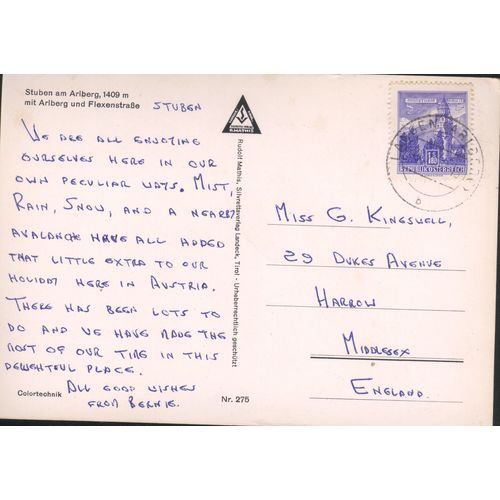 Stuben am Arlberg, 1409 m
mit Arlberg und Flexenstraße STUBEN
WE ARE ALL ENJOYING
OURSELVES HERE IN OUR
OWN PECULIAR WAYS. MIST,
RAIN, SNOW, AND A NEARBY
AVALANCHE HAVE ALL ADDED
THAT LITTLE EXTRA TO OUR
HOLIDAY HERE IN AUSTRIA.
THERE HAS BEEN LOTS TO
DO AND WE HAVE MADE THE
MOST OF OUR TIME IN THIS
DEWEHTFUL PLACE.
ALL GOOD WISHES
FROM BERNIE.
Colortechnik
Nr. 275
R.MATHIS
Rudolf Mathis, Silvrettaverlag Landeck, Tirol - Urheberrechtlich geschützt
REPUBLIK ÖSTERREICH
MISS G. KINGSWELL,
29 DUKES AVENUE
HARROW
MIDDLESEX
ENGLAND.